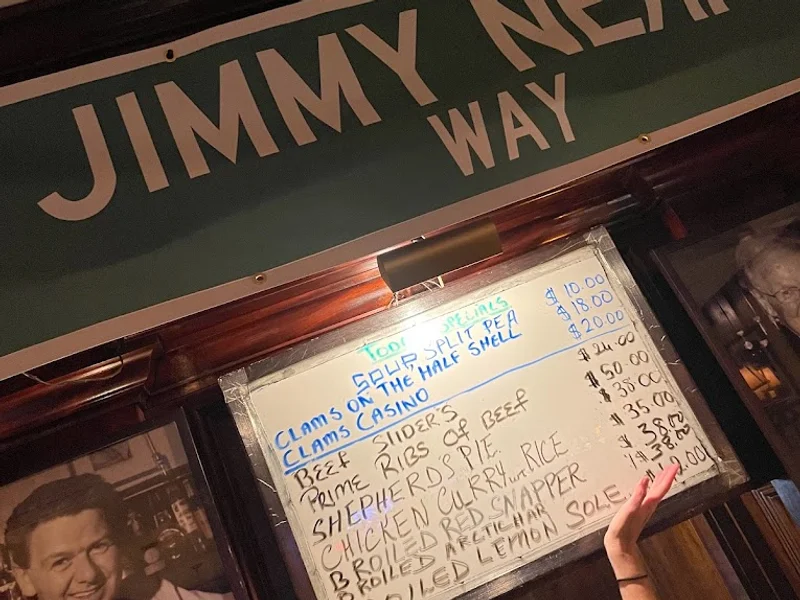 JIMMY
WAY
SPECIALS
SOUP SPLIT PEA $10.00
CLAMS ON THE HALF SHELL $18.00
CLAMS CASINO $20.00
BEEF SLIDER'S $24.00
PRIME RIBS OF BEEF $50.00
SHEPHERD'S PIE $38.00
CHICKEN CURRY w/ RICE $35.00
BROILED RED SNAPPER $38.00
BROILED ARCTIC CHAR $38.00
LEMON SOLE